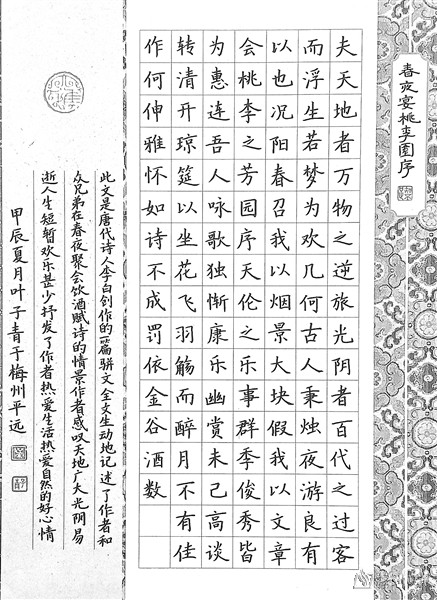 春夜宴桃李园序
夫天地者万物之逆旅光阴者百代之过客
而浮生若梦为欢几何古人秉烛夜游良有
以也况阳春召我以烟景大块假我以文章
会桃李之芳园序天伦之乐事群季俊秀皆
为惠连吾人咏歌独惭康乐幽赏未已高谈
转清开琼筵以坐花飞羽觞而醉月不有佳
作何伸雅怀如诗不成罚依金谷酒数
此文是唐代诗人李白创作的一篇骈文全文生动地记述了作者和
众兄弟在春夜聚会饮酒赋诗的情景作者感叹天地广大光阴易
逝人生短暂欢乐甚少抒发了作者热爱生活热爱自然的好心情
甲辰夏月叶子青于梅州平远